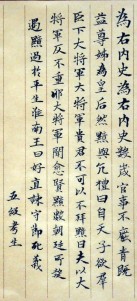 為右內史為右內史數歲官事不廢青既
益尊姊為皇后然黯與亢禮曰自天子欲群
臣下大將軍大將軍貴君不可以不拜黯曰夫以大
將軍反不重邪大將軍聞愈賢黯數朝廷所疑
遇黯過於平生淮南王曰好直諫守節死義
五級考生